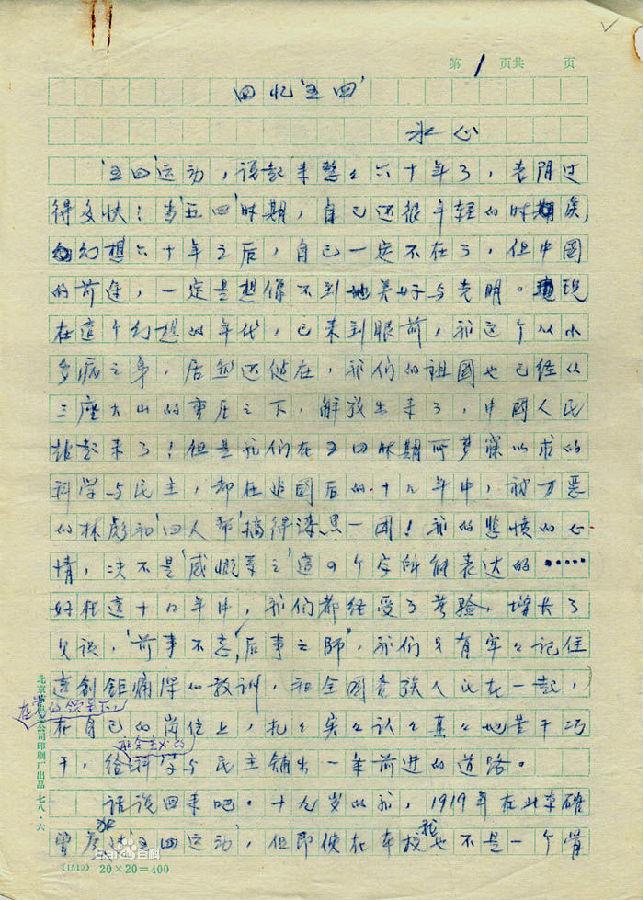 第1页共 页
回忆“五四”
冰心
“五四”运动,说起来整々六十年了,光阴过
得多快!当“五四”时期,自己还很年轻的时候
幻想六十年之后,自己一定不在了,但中國
的前途,一定是想像不到地美好与光明。现
在這个幻想的年代,已来到眼前,我这个从小
多病之身,居然还健在,我们的祖國也已经从
三座大山的重压之下,解放出来了,中國人民
站起来了!但是我们在五四时期所梦寐以求的
科学与民主,却在祖國后的十九年中,被万恶
的林彪和“四人帮”搞得漆黑一团!我的悲愤的心
情,决不是“感慨系之”這四个字所能表达的……
好在這十几年中,我们都经受了考验,增长了
见识,“前事不忘,后事之师”,我们只有牢々记住
這创鉅痛深的教训,和全國各族人民在一起,
在党的领导下
在自己的岗位上,扎々实々认々真々地苦干巧
社会主义的
干,给科学与民主铺出一条前进的道路。
话说回来吧。十九岁的我,1919年在北京确
曾参加过“五四运动”,但即使在本校我也不是一个骨
(1510) 20×20=400
Bai百科